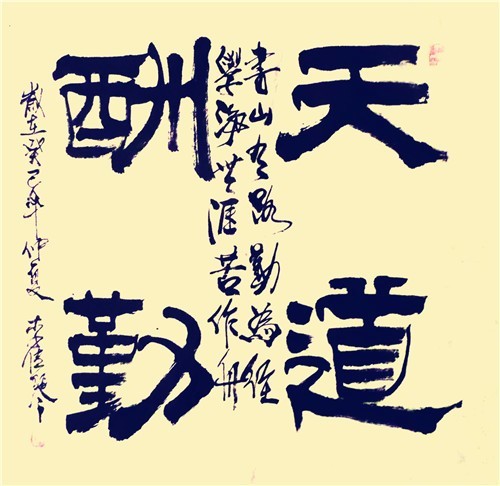 天道
酬勤
書山有路勤為徑
學海無涯苦作舟
歲在癸巳年仲夏